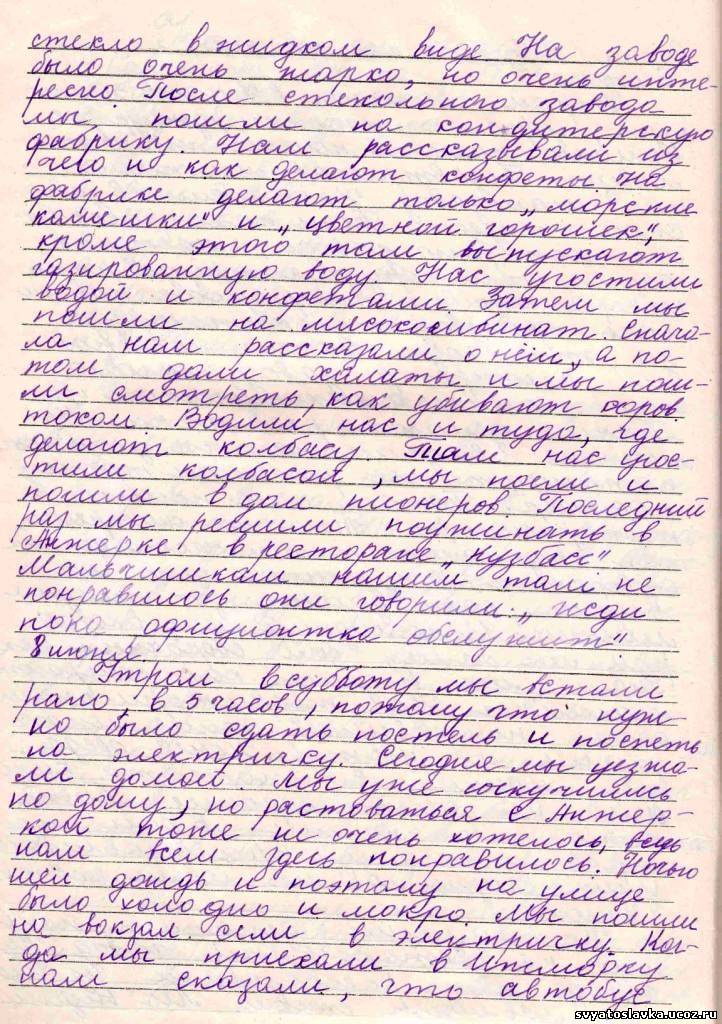 стекло в жидком виде. На заводе
было очень жарко, но очень инте-
ресно. После стекольного завода
мы пошли на кондитерскую
фабрику. Нам рассказывали из
чего и как делают конфеты. На
фабрике делают только „морские
камешки" и „цветной горошек",
кроме этого там выпускают
газированную воду. Нас угостили
водой и конфетами. Затем мы
пошли на мясокомбинат. Снача-
ла нам рассказали о нём, а по-
том дали халаты и мы пош-
ли смотреть, как убивают коров
током. Водили нас и туда, где
делают колбасу. Там нас угос-
тили колбасой, мы поели и
пошли в дом пионеров. Последний
раз мы решили поужинать в
Анжерке в ресторане „Кузбасс"
Мальчишкам нашим там не
понравилось они говорили: „жди
пока официантка обслужит".
8 июня
Утром в субботу мы встали
рано, в 5 часов, потому что нуж-
но было сдать постель и поспеть
на электричку. Сегодня мы уезжа-
ли домой. Мы уже соскучились
по дому, но растоваться с Анжер-
кой тоже не очень хотелось, ведь
нам всем здесь понравилось. Ночью
шёл дождь и поэтому на улице
было холодно и мокро. Мы пошли
на вокзал. сели в электричку. Ког-
да мы приехали в Ижморку
нам сказали, что автобус
svyatoslavka.ucoz.ru